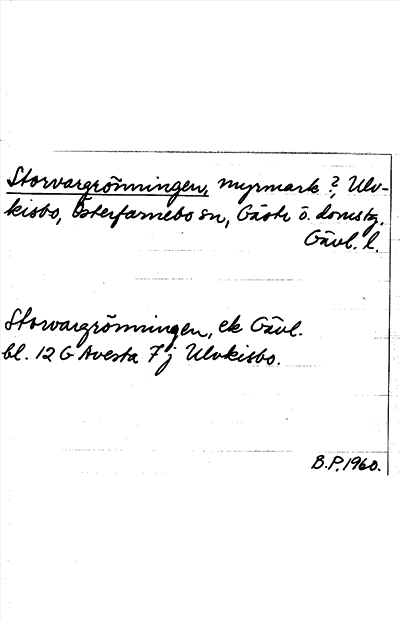 Storvargrönningen, myrmark?, Ulv-
kisbo, Österfärnebo sn, Gästr. ö. domstg.
Gävl. l.
Storvargrönningen, ek Gävl.
bl. 12 G Avesta 7 j Ulvkisbo.
B.P. 1960.